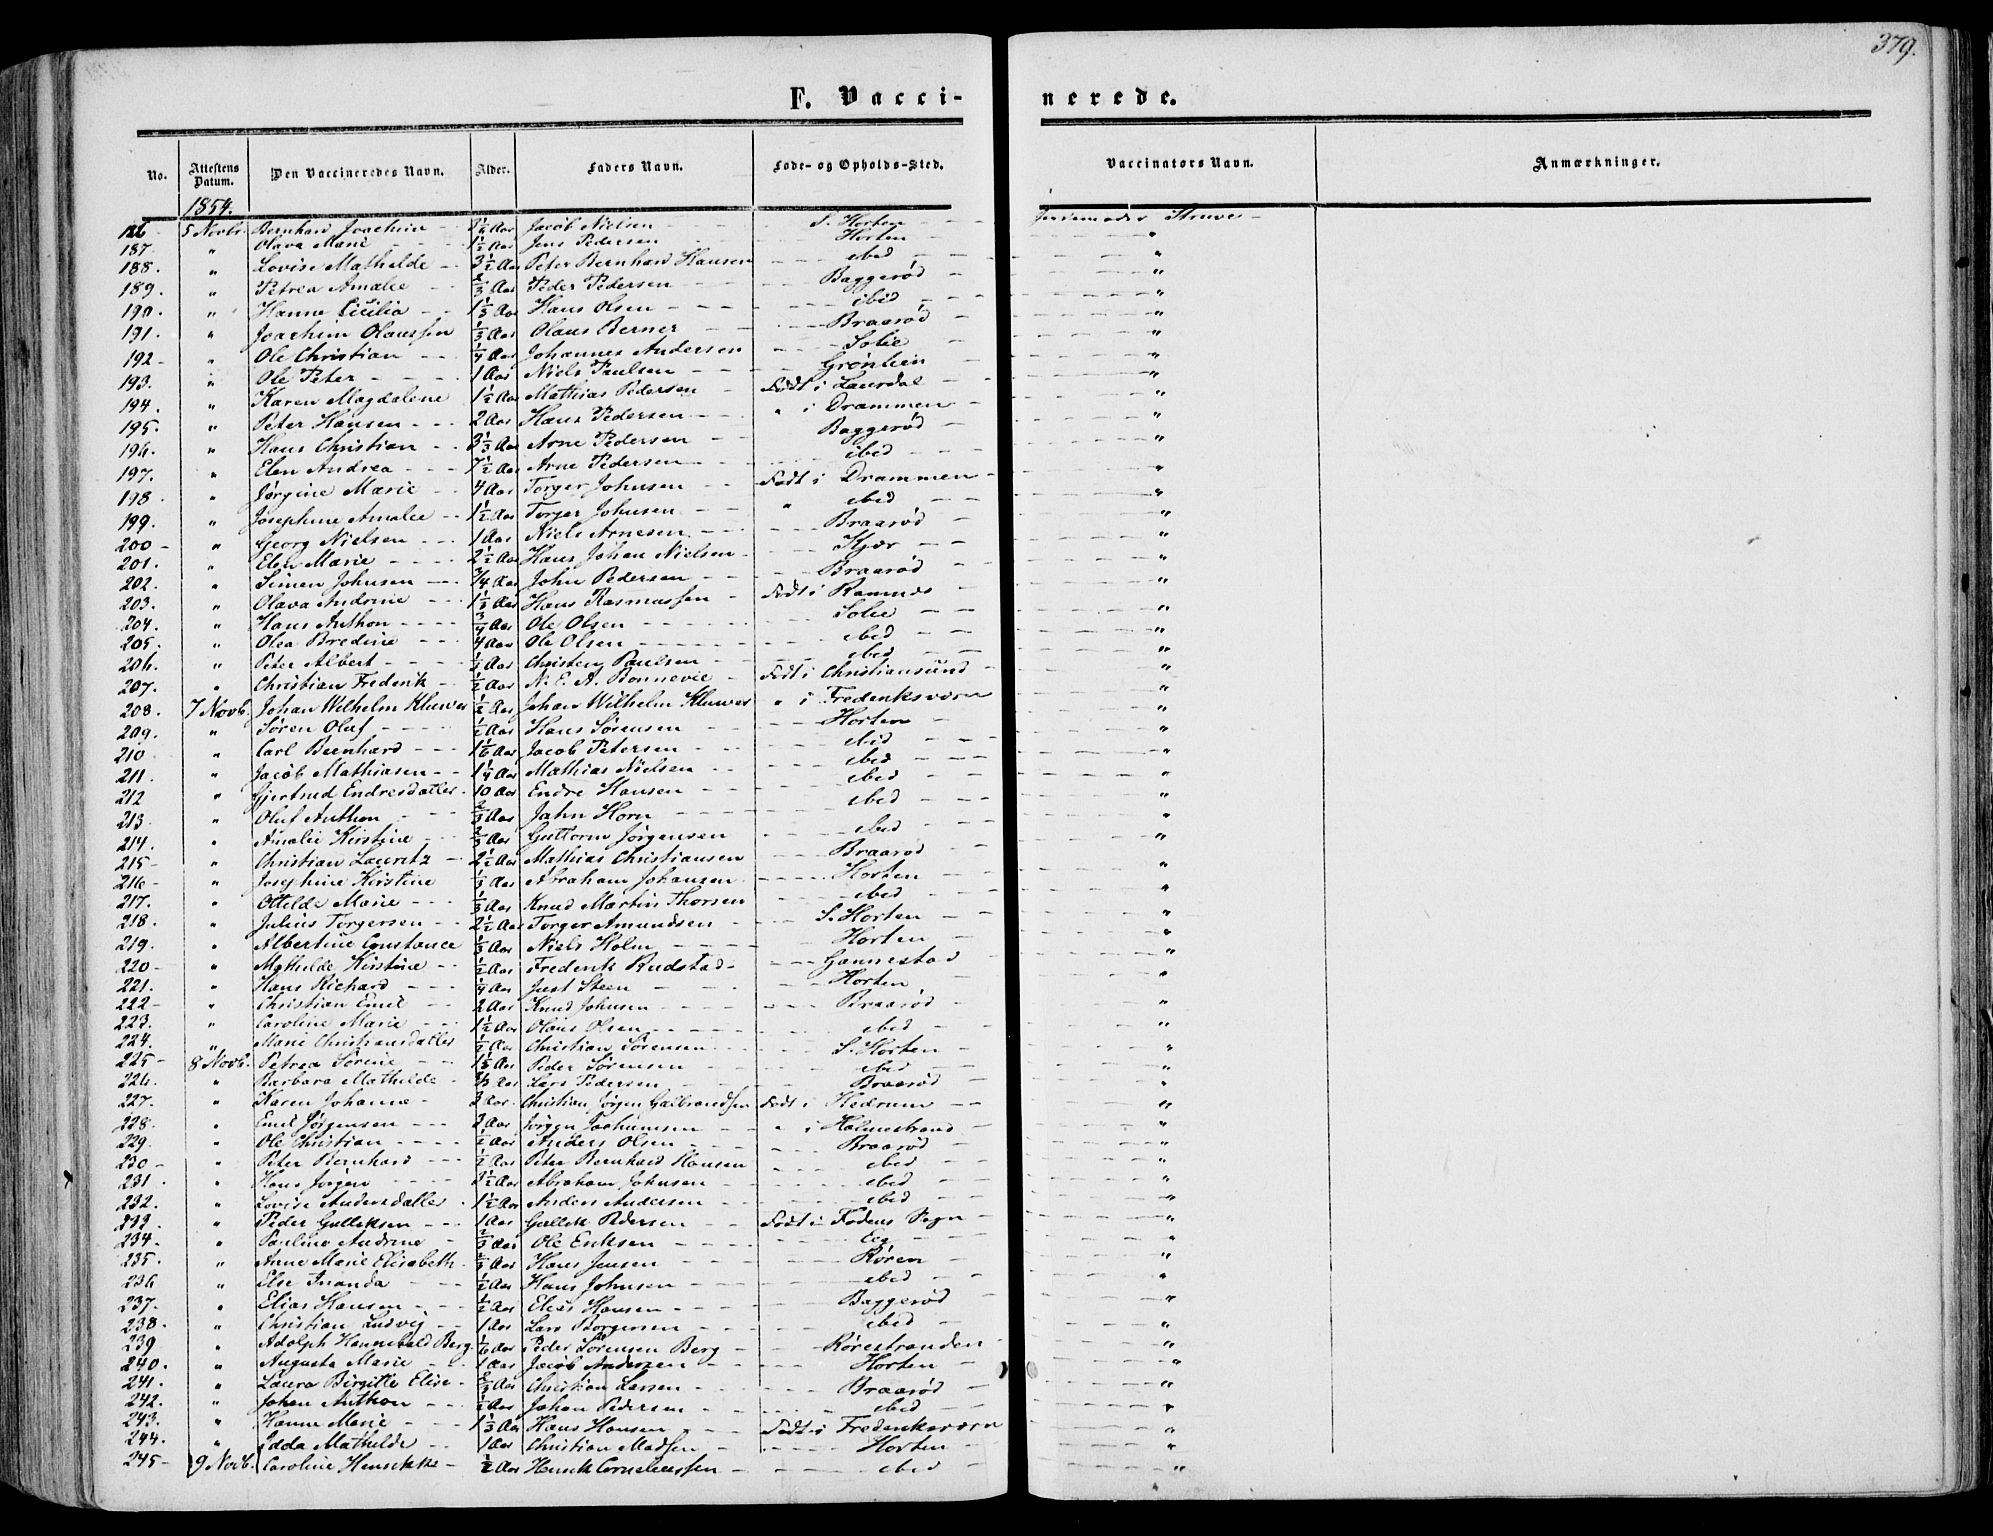 379.
F. Vacci- nerede.
No. Attestens Datum. Den Vaccineredes Navn. Alder. Faders Navn. Føde- og Opholds-Sted. Vaccinators Navn. Anmærkninger.
1854.
186 5 Novbr. Bernhard Joachim 1 1/2 Aar Jacob Nielsen S. Horten Struve
187. " Olava Marie 1 1/2 Aar Jens Pedersen Horten "
188. " Lovise Mathilde 3 1/2 Aar Peter Bernhard Hansen ibid "
189. " Petrea Amalie 2/3 Aar Peder Pedersen Baggerød "
190. " Hanne Cicilia 1 1/3 Aar Hans Olsen ibid "
191. " Joachim Olaussen 1/3 Aar Olaus Berner Braarød "
192 " Ole Christian 1/4 Aar Johannes Andersen Solie "
193. " Ole Peter 1 Aar Niels Paulsen Grønlien "
194. " Karen Magdalene 1 1/2 Aar Mathias Pedersen Født i Laurdal "
195. " Peter Hansen 2 Aar Hans Pedersen " i Drammen "
196. " Hans Christian 3 1/3 Aar Arne Pedersen Baggerød "
197. " Elen Andrea 7 1/2 Aar Arne Pedersen ibid "
198. " Jørgine Marie 4 Aar Torger Johnsen Født i Drammen "
199. " Josephine Amalie 1 1/2 Aar Torger Johnsen " ibid "
200 " Georg Nielsen 1 Aar Niels Arnesen Braarød "
201. " Elen Marie 2 1/2 Aar Hans Johan Nielsen Kjær "
202. " Simen Johnsen 3/4 Aar John Pedersen Braarød "
203. " Olava Andrine 1 1/3 Aar Hans Rasmussen Født i Ramnes "
204. " Hans Anthon 3/4 Aar Ole Olsen Solie "
205. " Olea Bredine 4 Aar Ole Olsen ibid "
206. " Peter Albert 1/2 Aar Christen Paulsen ibid "
207. " Christian Frederik 1/2 Aar N. E. A. Bonnevie Født i Christiansund "
208. 7 Novb. Johan Wilhelm Kluwer 1/2 Aar Johan Wilhelm Kluwer " i Frederiksværn "
209. " Søren Oluf 1/2 Aar Hans Sørensen Horten "
210 " Carl Bernhard 1 1/6 Aar Jacob Petersen ibid "
211. " Jacob Mathiasen 1 1/4 Aar Mathias Nielsen ibid "
212 " Gjertrud Endresdatter 10 Aar Endre Hansen ibid "
213. " Oluf Anthon 2/3 Aar Jahn Horn ibid "
214. " Amalie Kirstine 2/3 Aar Guttorm Jørgensen ibid "
215 " Christian Lauritz 2 1/2 Aar Mathias Christiansen Braarød "
216 " Josephine Kirstine 1/3 Aar Abraham Johansen Horten "
217. " Ottilde Marie 1/3 Aar Knud Martin Thorsen ibid "
218. " Julius Torgersen 2 1/2 Aar Torger Amundsen S. Horten "
219. " Albertine Constance 1/3 Aar Niels Holm Horten "
220 " Mathilde Kirstine 1/2 Aar Frederik Rudstad Gannestad "
221. " Hans Richard 1/4 Aar Just Steen Horten "
222 " Christian Emil 2 Aar Knud Johnsen Braarød "
223. " Caroline Marie 1 1/2 Aar Olaus Olsen ibid "
224. " Marie Christiansdatter 1/2 Aar Christian Sørensen S. Horten "
225 8 Novb. Petrea Sørine 1 1/3 Aar Peder Sørensen ibid "
226. " Barbara Mathilde Aar Lars Pedersen Braarød "
227. " Karen Johanne 3 Aar Christian Jørgen Gulbrandsen Født i Hedrum "
228. " Emil Jørgensen 3 Aar Jørgen Joachimsen " i Holmestrand "
229. " Ole Christian 1/2 Aar Anders Olsen Braarød "
230 " Peter Bernhard 1/2 Aar Peter Bernhard Hansen ibid "
231. " Hans Jørgen 3 1/2 Aar Abraham Johnsen ibid "
232. " Lovise Andersdatter 1 1/2 Aar Anders Andersen ibid "
233. " Peder Gulliksen 1 Aar Gullik Pedersen Født i Fodens Sogn "
234. " Pauline Andrine 2/3 Aar Ole Eriksen Eg "
235. " Anne Marie Elisabeth 2/3 Aar Hans Jensen Røren "
236 " Else Inanda 1/2 Aar Hans Johnsen ibid "
237. " Elias Hansen 1/2 Aar Elias Hansen Baggerød "
238. " Christian Ludvig 1 Aar Lars Borgersen ibid "
239 " Adolph Hannibald Berg 1/6 Aar Peder Sörensen Berg Rørestranden "
240. " Augusta Marie 1 Aar Jacob Andersen Horten "
241. " Laura Birgitte Elise 2/3 Aar Christian Larsen Braarød "
242. " Johan Anthon 1/2 Aar Johan Pedersen ibid "
243. " Hanne Marie 1 1/3 Aar Hans Hansen Født i Frederiksværn "
244. " Edda Mathilde 1 Aar Christian Madsen Horten "
245 9 Novb. Caroline Henrikke 1/2 Aar Henrik Corneliussen ibid "